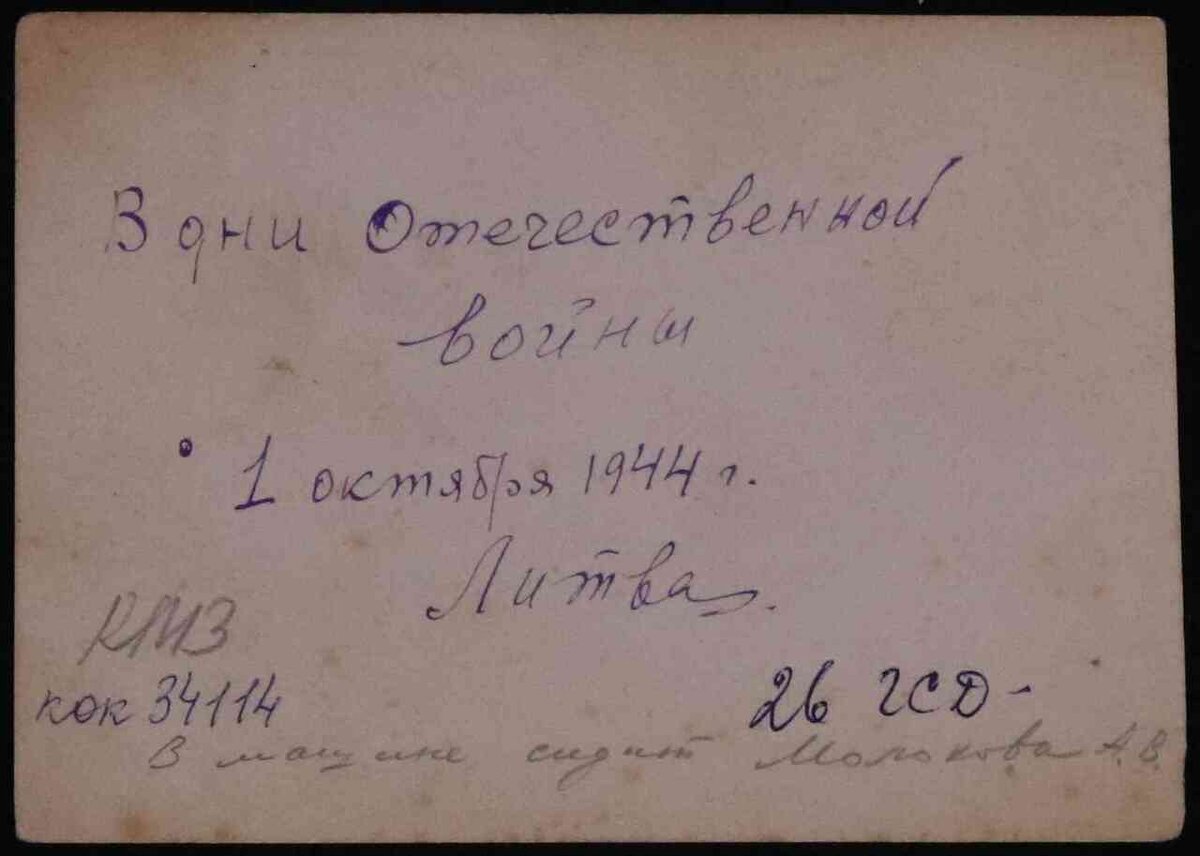 В дни Отечественной
войны
1 октября 1944 г.
Литва.
КМЗ
кок 34114
26 ГСД -
В машине сидит Молокова А.В.